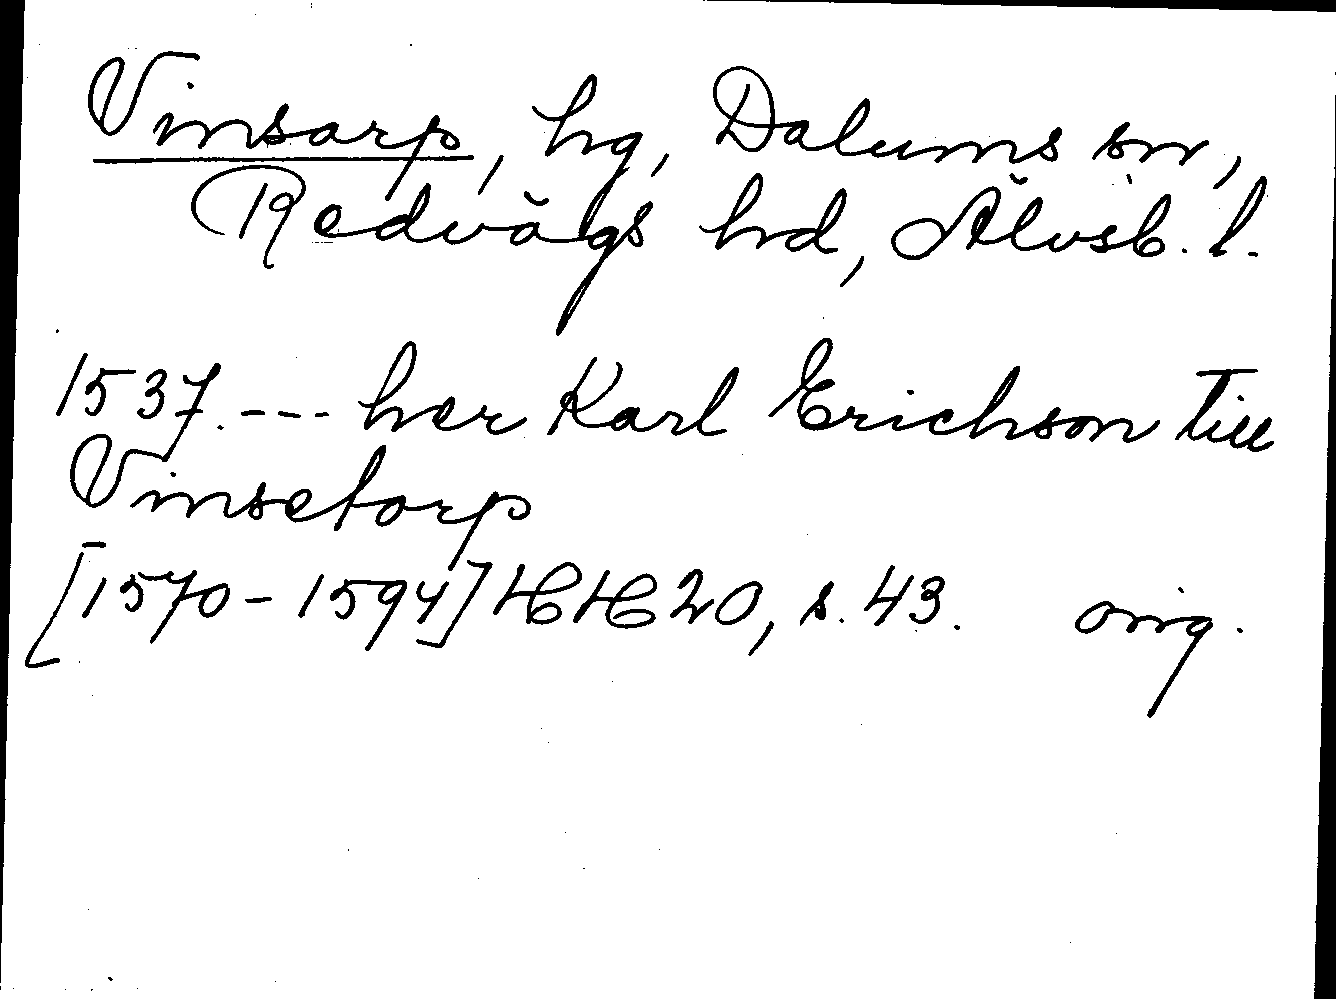 Vinsarp, hg, Dalums sn,
Redvägs hd, Älvsb. l.
1537. --- her Karl Erichson till
Vinsetorp
[1570-1594] HH 20, s. 43. orig.